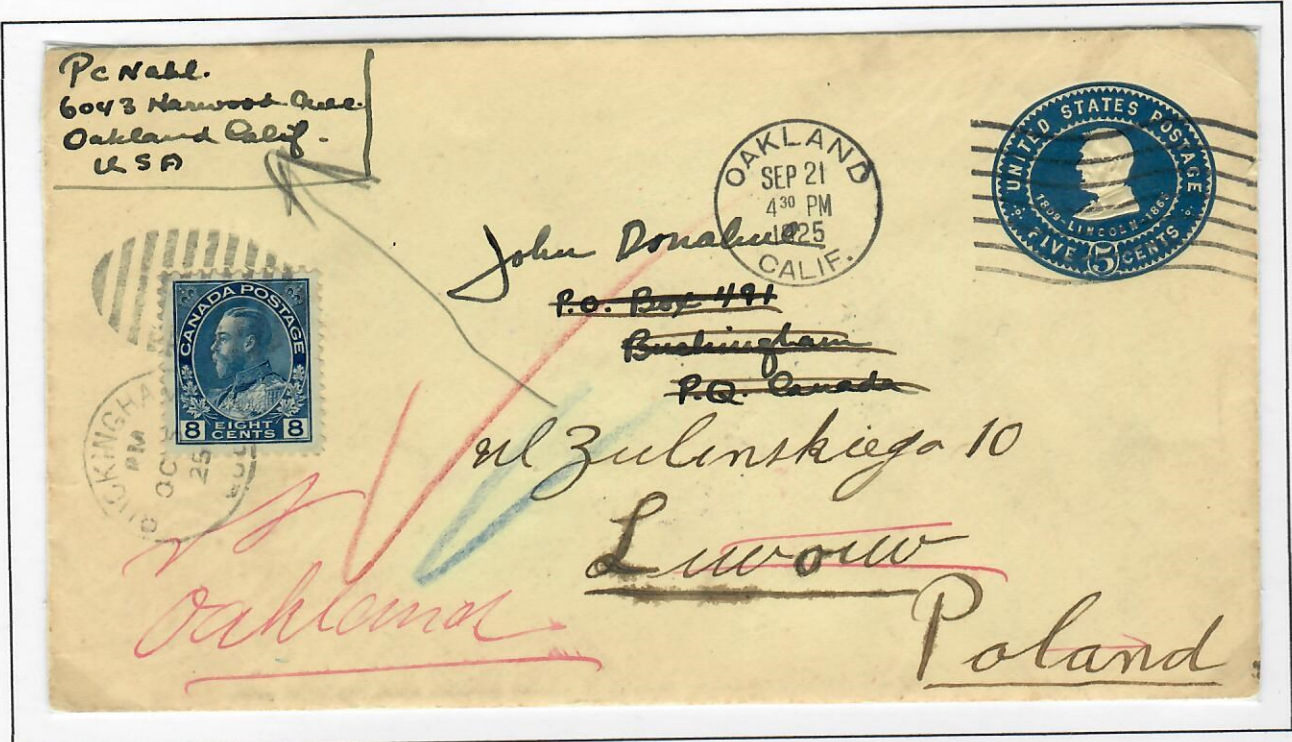 Pc Nahl.
6043 Harwood Ave.
Oakland Calif.
USA
OAKLAND
SEP 21
4 30 PM
1925
CALIF.
UNITED STATES POSTAGE
1809-LINCOLN-1865
FIVE 5 CENTS
CANADA POSTAGE
8 EIGHT CENTS 8
BUCKINGHA
PM
OC
25
John Donahue
P.O. Box 491
Buckingham
P.Q. Canada
ul Zulinskiego 10
Lwow
Poland
Oakland